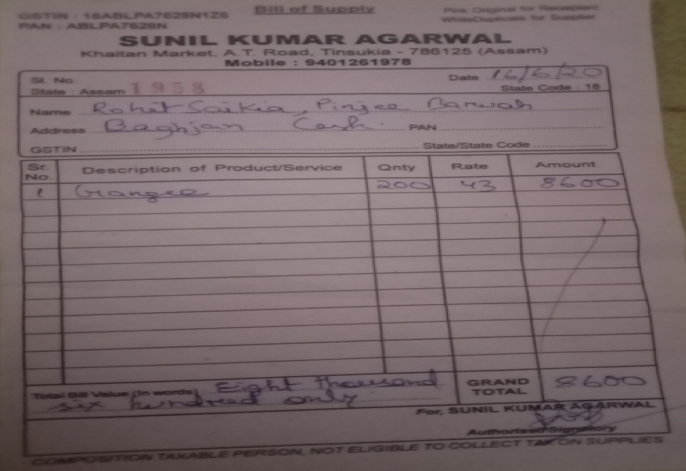 GSTIN : 18ABLPA7628N1Z6 Bill of Supply Pink Original for Receipient
PAN : ABLPA7628N White Duplicate for Supplier
SUNIL KUMAR AGARWAL
Khaitan Market, A.T. Road, Tinsukia - 786125 (Assam)
Mobile : 9401261978
Sl. No. 1958 Date 16/6/20
State : Assam State Code : 18
Name Rohit Saikia, Pinjee Barwah
Address Baghjan Cash. PAN
GSTIN State/State Code
Sr. No. Description of Product/Service Qnty Rate Amount
1 200 43 8600
Total Bill Value (in words) Eight thousand GRAND TOTAL 8600
six hundread only
For, SUNIL KUMAR AGARWAL
Authorised Signatory
COMPOSITION TAXABLE PERSON, NOT ELIGIBLE TO COLLECT TAX ON SUPPLIES